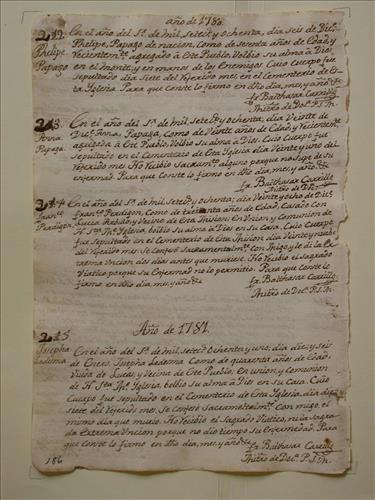 año de 1780
212
Phelipe,
Papago
En el año del Sr. de mil, setecs. y ochenta, dia seis de Dice.
Phelipe, Papago de nacion, como de setenta años de edad, y
recientemte. agregado à este Pueblo, Volbio su alma à Dios
en el monte, y en manos de los Enemigos. Cuio cuerpo fue
sepultado dia siete del referido mes, en el cementerio de es-
ta Iglesia. Para que conste lo firmo en dho dia, mes, y año
fr. Balthasar Carrillo
213
Anna
Papaga
En el año del Sr. de mil, setecs. y ochenta, dia Veinte de
Dice. Anna, Papaga, como de Veinte años de Edad, y recientemte.
agregada à este Pueblo, Volbio su alma à Dios. Cuio Cuerpo fue
sepultado en el Cementerio de esta Iglesia dia Veinte y uno del
referido mes. No recibio Sacramto. alguno porque no supe de su
enfermad. Para que conste lo firmo en dho dia, mes, y año
fr. Balthasar Carrillo
214
En el año del Sr. de mil, setecs. y ochenta, dia Veinte y ocho de Dice.
Franco. Perdigon, como de años de Edad, Casado con
y Vecino de esta Mision: en Union y Comunion de
N. Sta. Me. Iglesia, bolbio su alma à Dios en su casa. Cuio Cuerpo
fue sepultado en el Cementerio de esta Mision dia Veinte y nuebe
del referido mes. Se confesò Sacramentalmte. conmigo, y le di la Ex-
trema Vncion dos dias antes que muriese. No recibio el sagrado
Viatico porque su Enfermad. no lo permitio. Para que conste lo
firmo en dho dia, mes, y año
fr. Balthasar Carrillo
Año de 1781
215
Josepha
Ledesma
En el año del Sr. de mil, setecs. ochenta y uno, dia diez y seis
de Enero, Josepha Ledesma como de quarenta años de Edad,
Viuda de Lucas, y Vecina de este Pueblo, En union, y comunion
de N. Sta. Me. Iglesia, bolbio su alma à Dios en su Casa. Cuio
Cuerpo fue sepultado en el Cementerio de esta Iglesia, dia diez y
siete del referido mes. Se confesò Sacramentalmte. con migo, el
mismo dia que murio. No recibio el Sagrado Viatico, ni la Sagra-
da Extrema Vncion porque no dio tiempo su Enfermedad. Para
que conste lo firmo en dho dia, mes, y año
fr. Balthasar Carrillo
186